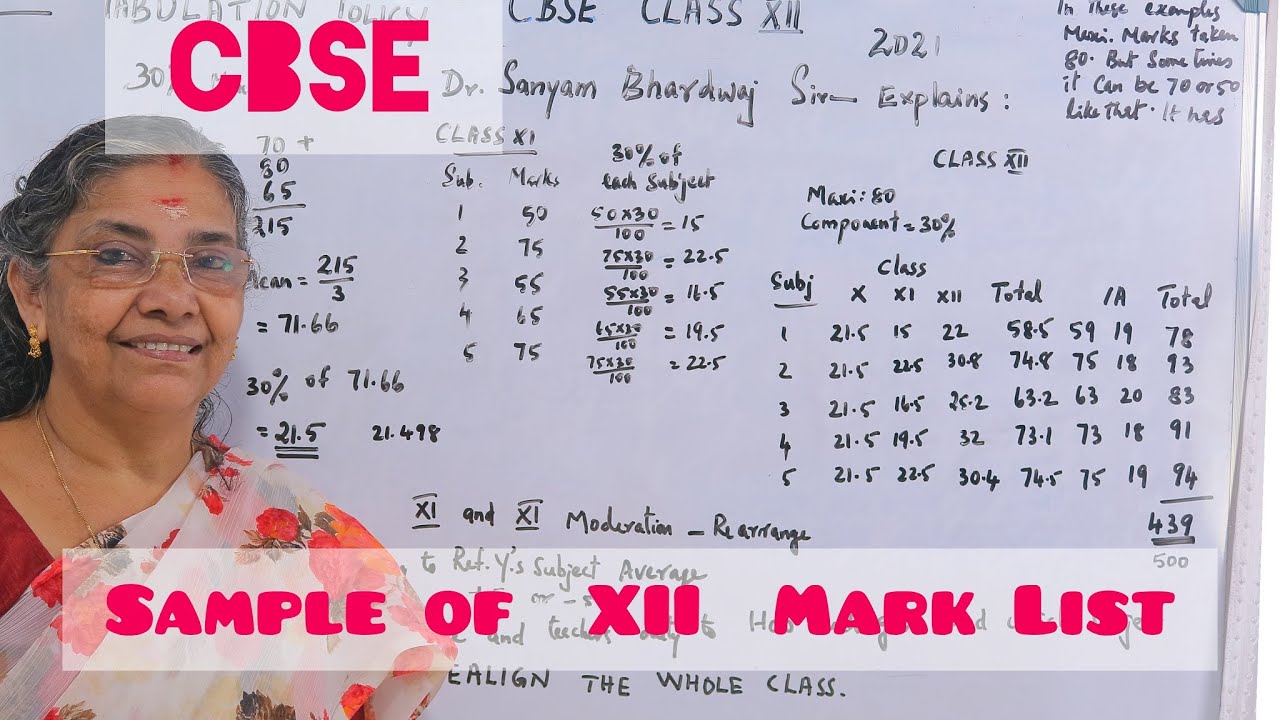 TABULATION POLICY CBSE CLASS XII
CBSE
2021
In these examples
Maxi. Marks taken
80. But Some times
it Can be 70 or 50
like that. It has
30%
Dr. Sanyam Bhardwaj Sir — Explains:
70 +
80
65
215
= 215/3
= 71.66
30% of 71.66
= 21.5 21.498
CLASS XI
30% of
each Subject
Sub. Marks
1 50 50×30/100 = 15
2 75 75×30/100 = 22.5
3 55 55×30/100 = 16.5
4 65 65×30/100 = 19.5
5 75 75×30/100 = 22.5
CLASS XII
Maxi: 80
Component = 30%
Class
Subj X XI XII Total IA Total
1 21.5 15 22 58.5 59 19 78
2 21.5 22.5 30.8 74.8 75 18 93
3 21.5 16.5 25.2 63.2 63 20 83
4 21.5 19.5 32 73.1 73 18 91
5 21.5 22.5 30.4 74.5 75 19 94
439
500
XI and XI Moderation – Rearrange
to Ref. Y's Subject Average
or -5
Sample of XII Mark List
and teachers duty to
REALIGN THE WHOLE CLASS.